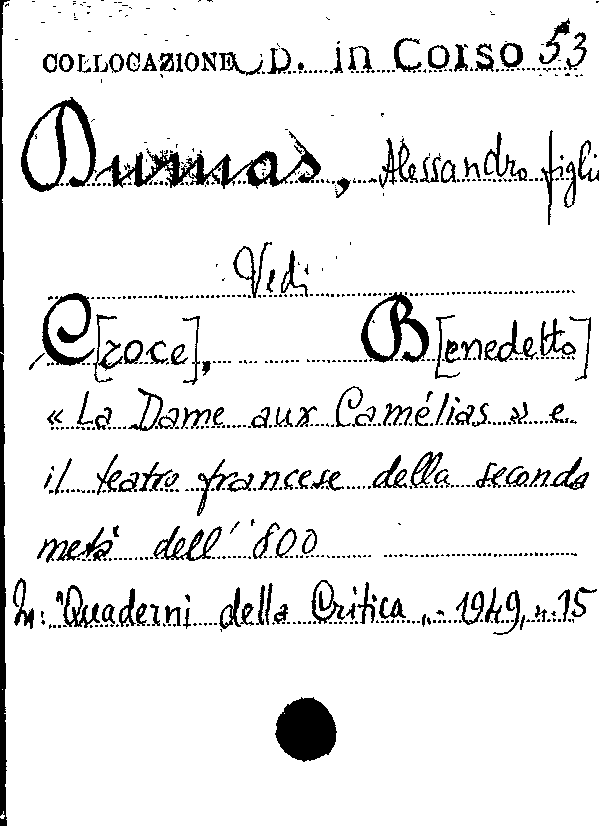 COLLOCAZIONE D. in Corso 53
Dumas, Alessandro figlio
Vedi
C[roce], B[enedetto]
« La Dame aux Camélias » e
il teatro francese della seconda
metà dell' '800
In: "Quaderni della Critica„ - 1949, n. 15